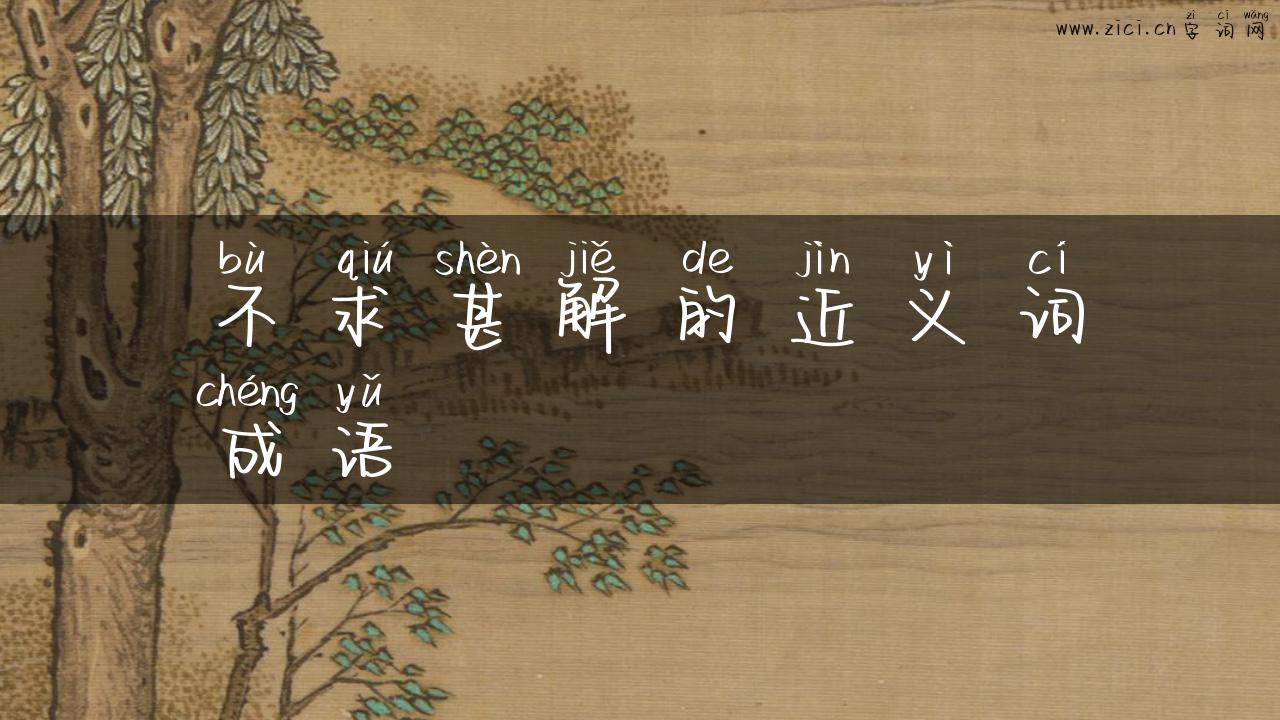 zì cí wǎng
www.zici.cn 字词网
bù qiú shèn jiě de jìn yì cí
不求甚解的近义词
chéng yǔ
成语